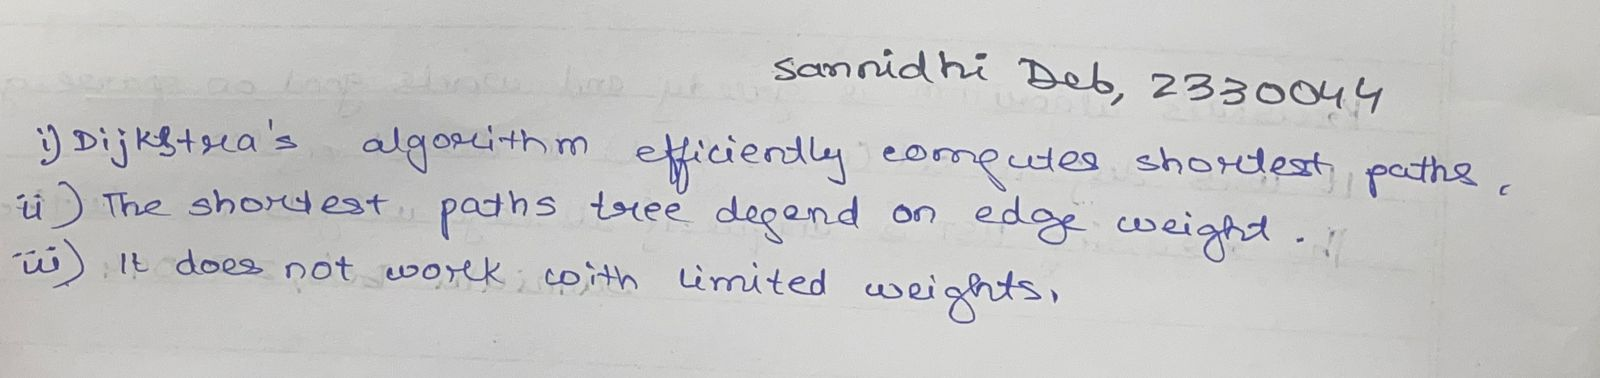 Sannidhi Deb, 2330044
i) Dijkstra's algorithm efficiently computes shortest paths.
ii) The shortest paths tree depend on edge weight.
iii) It does not work with limited weights.